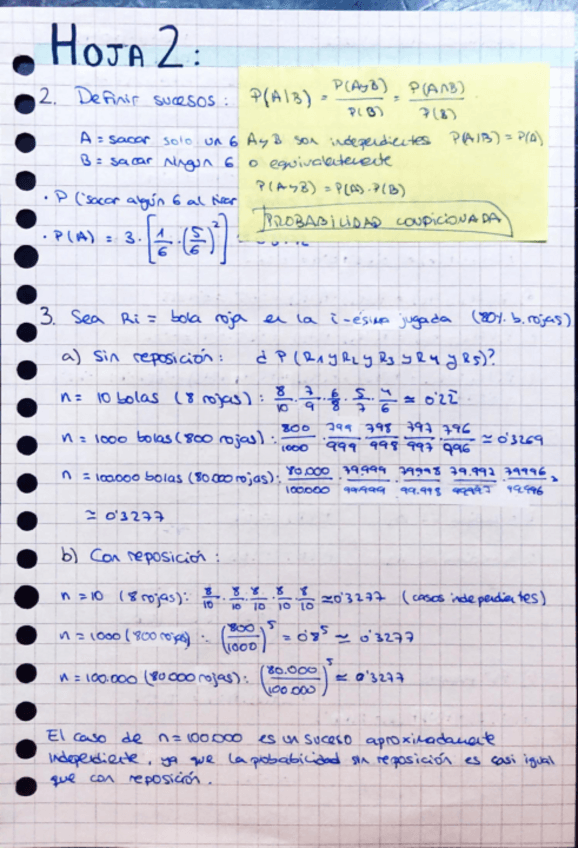 HOJA 2:
2. Definir sucesos:
P(A|B) = P(A y B)/P(B) = P(A∩B)/P(B)
A = sacar solo un 6
A y B son independientes P(A|B) = P(A)
B = sacar ningún 6
o equivalentemente
P(A y B) = P(A)·P(B)
PROBABILIDAD CONDICIONADA
· P ("sacar algún 6 al tirar
· P(A) = 3·[1/6·(5/6)²]
3. Sea Ri = bola roja en la i-ésima jugada (80% b. rojas)
a) Sin reposición: ¿P(R1 y R2 y R3 y R4 y R5)?
n = 10 bolas (8 rojas): 8/10·7/9·6/8·5/7·4/6 ≃ 0'22
n = 1000 bolas (800 rojas): 800/1000·799/999·798/998·797/997·796/996 ≃ 0'3269
n = 100000 bolas (80000 rojas): 80.000/100000·79.999/99.999·79.998/99.998·79.997/99.997·79.996/99.996
≃ 0'3277
b) Con reposición:
n = 10 (8 rojas): 8/10·8/10·8/10·8/10·8/10 ≃ 0'3277 (casos independientes)
n = 1000 (800 rojas): (800/1000)⁵ = 0'8⁵ ≃ 0'3277
n = 100.000 (80000 rojas): (80.000/100.000)⁵ ≃ 0'3277
El caso de n=100.000 es un suceso aproximadamente
independiente, ya que la probabilidad sin reposición es casi igual
que con reposición.